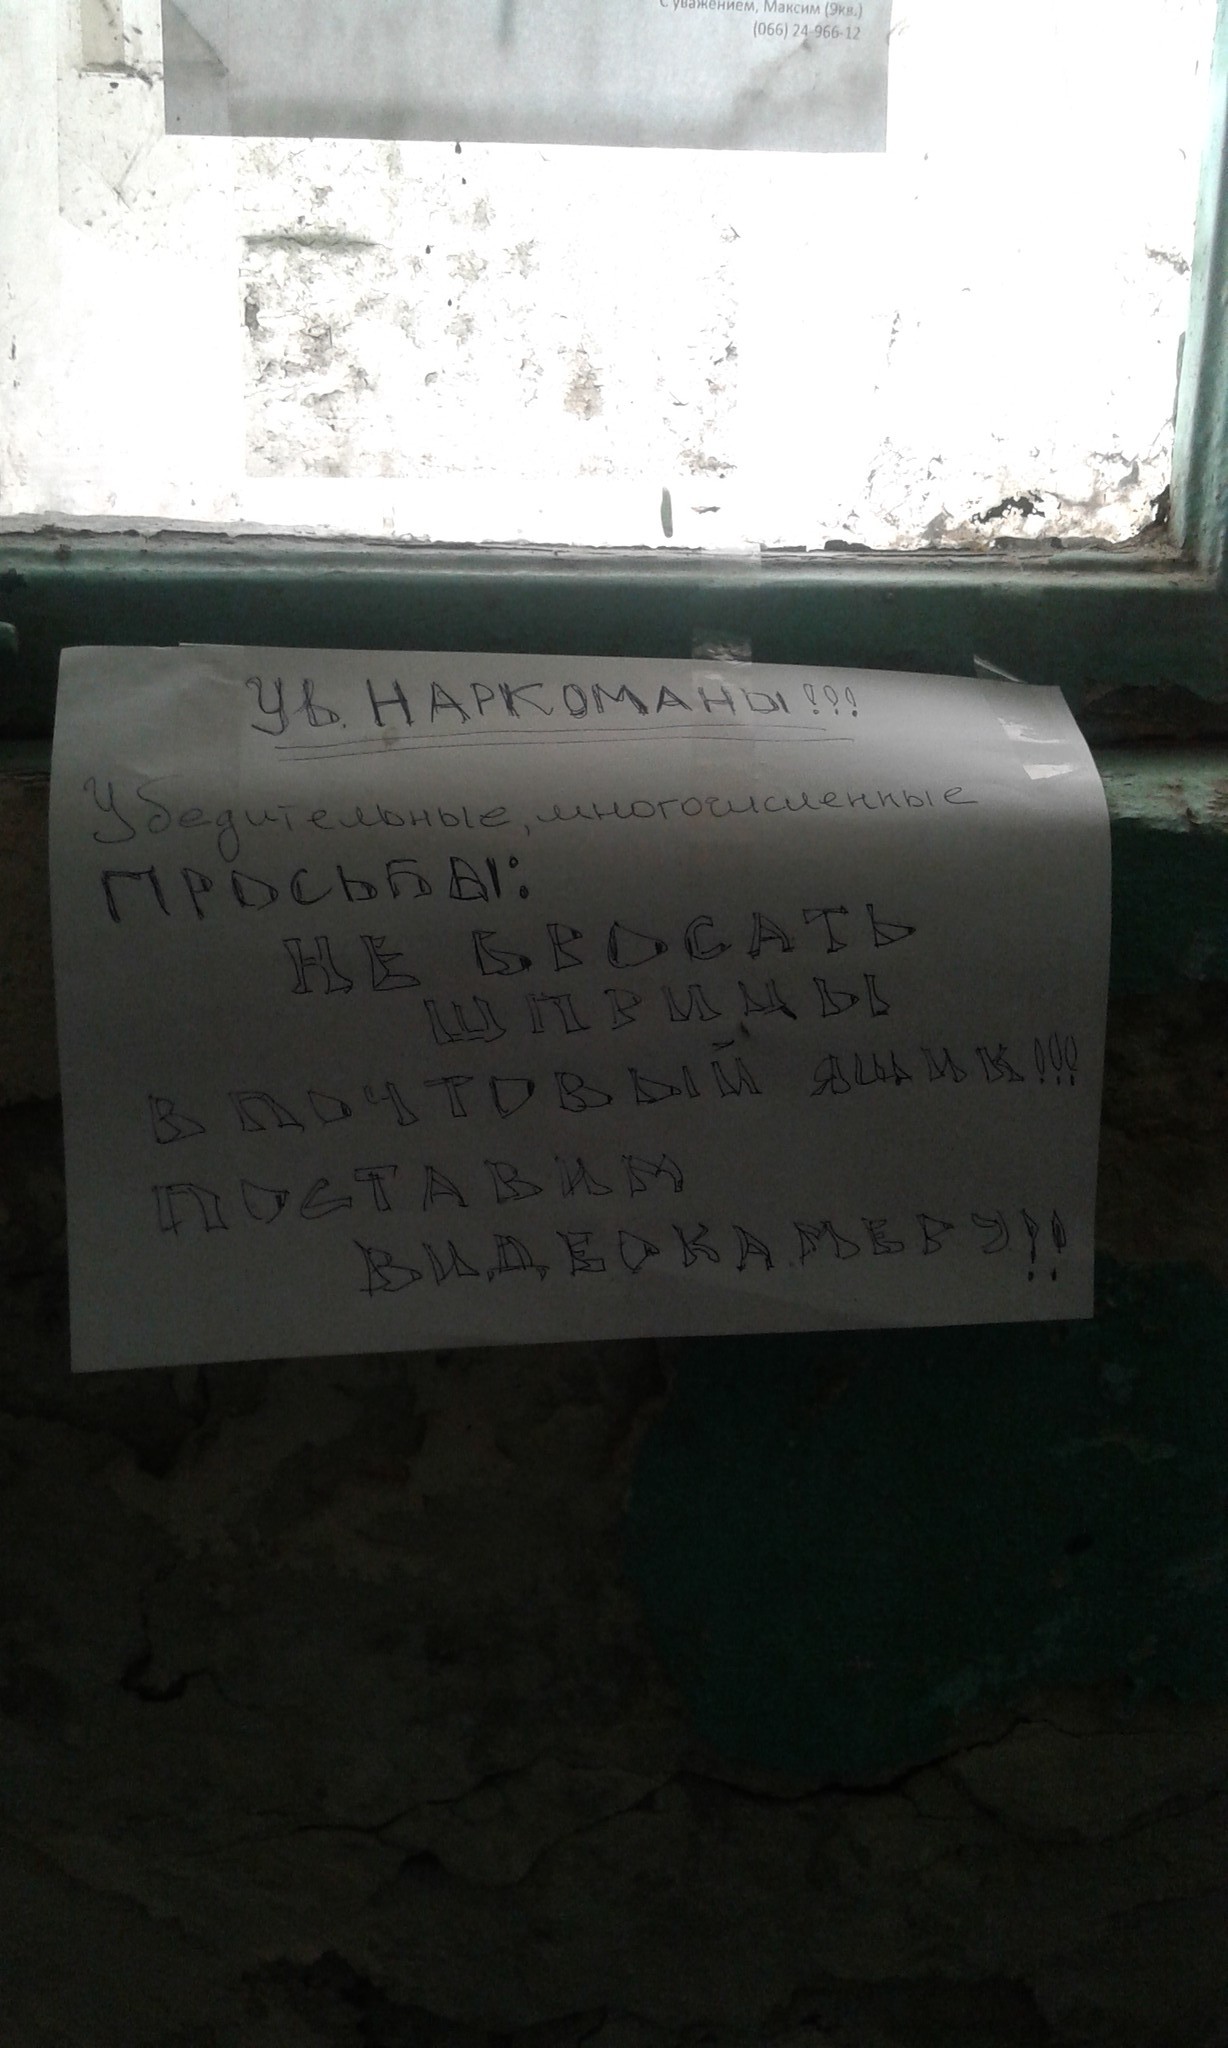 С уважением, Максим (9кв.)
(066) 24-966-12
УВ. НАРКОМАНЫ!!!
Убедительные, многочисленные
ПРОСЬБЫ:
НЕ БРОСАТЬ
ШПРИЦЫ
В ПОЧТОВЫЙ ЯЩИК!!!
ПОСТАВИМ
ВИДЕОКАМЕРУ!!